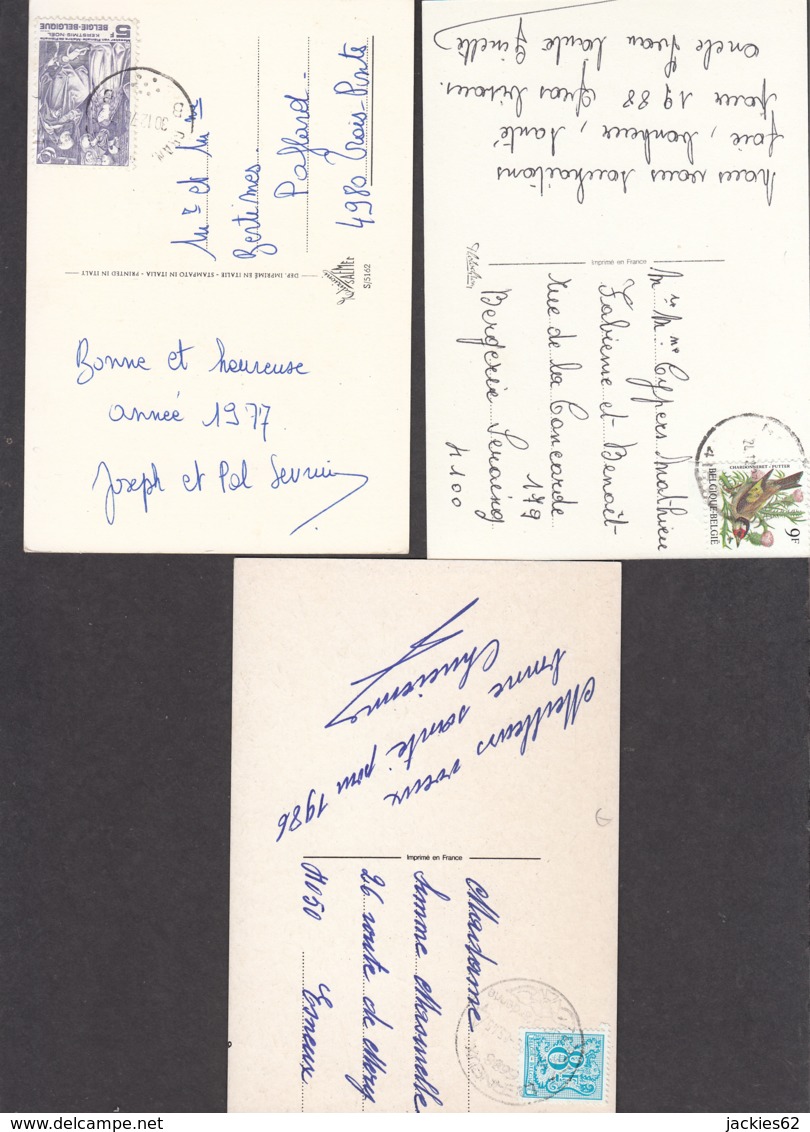 5F
BELGIË-BELGIQUE
KERSTMIS-NOËL
30.12.7
Mr et Mme
Bertimes.
Paffard
4980 Trois-Ponts
DEP. IMPRIMÉ EN ITALIE - STAMPATO IN ITALIA - PRINTED IN ITALY
S/5162
Bonne et heureuse
année 1977
Joseph et Pol
nous vous souhaitons
joie, bonheur, santé
pour 1988 Gros bisous.
oncle
Imprimé en France
Mr Mme Cypers Mathieu
Fabienne et Benoît
rue de la Concorde
179
Bergerie Seraing
4100
CHARDONNERET - PUTTER
BELGIQUE-BELGIË
9F
Meilleurs vœux
bonne santé pour 1986
Imprimé en France
Madame
26 route de Méry
4050 Esneux
8
delcampe.net
jackies62